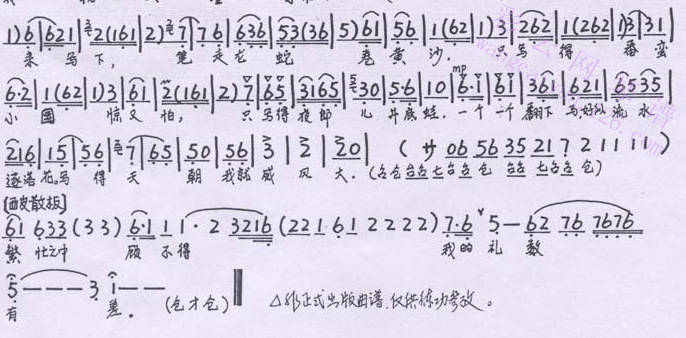 1)6|621|2(161|2)7|76|636|53(36|5)61|56|1(62|1)3|262|1(262|1)3|31|
来 马 下, 笔 走 龙 蛇 卷 黄 沙. 只 写 得 番 蛮
6·2|1(62|1)3|61|2(161|2)7|65|3165|30|5·6|10|6·1|61|361|621|6535|
mp
小 国 惊 又 怕, 只 写得 夜 郎 儿 井底 蛙. 一个 一个 翻下 马 好似 流 水
216|15|56|7|65|50|56|3|2|20| (サ 06 56 35 21 7 2 1 1 1 1 )
逐落花. 写 得 天 朝 我就 威 风 大.
[西皮散板]
61 633 (3 3) 6·1 1 1·2 3216 (221·61 2 2 2 2) 7·6 5 — 62 76 7676
繁 忙之中 顾 不得 我的 礼 数
5 — — — 3 1 — —
有 差. (仓才仓) △非正式出版曲谱.仅供练功参考。